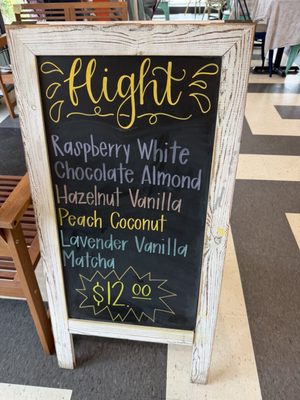 flight
Raspberry White
Chocolate Almond
Hazelnut Vanilla
Peach Coconut
Lavender Vanilla
Matcha
$12.00